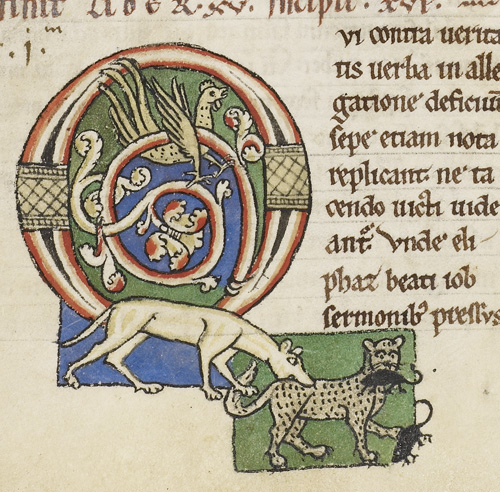 LIBER .XV. Incipit .XVI.
Q
vi contra verita
tis uerba in alle
gatione deficiunt
sepe etiam nota
replicant: ne ta
cendo uicti uide
ant᷑. Vnde eli
phaz beati iob
sermonib; pressus